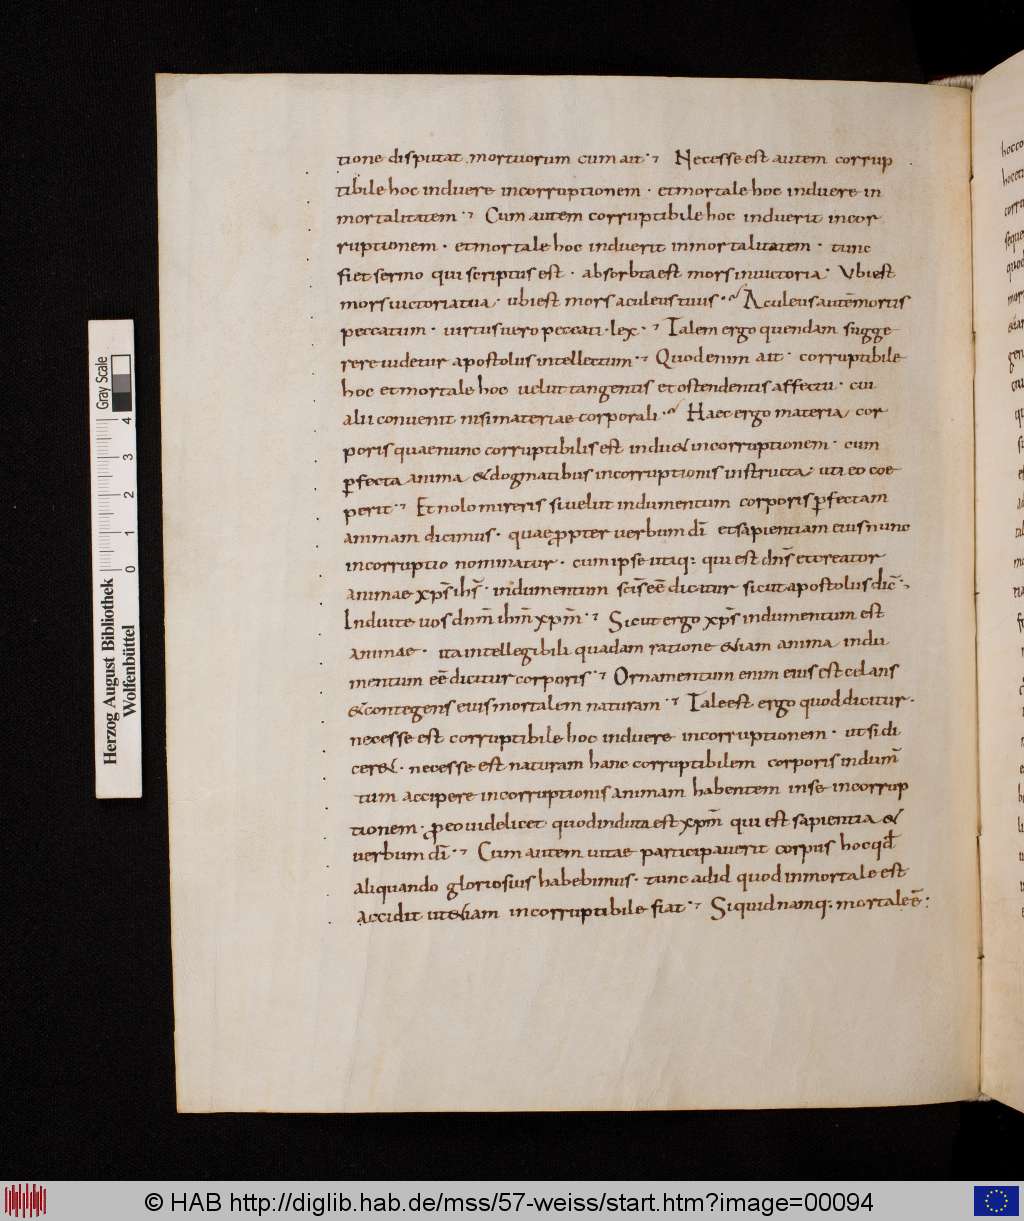 tione disputat mortuorum cum ait · Necesse est autem corrup
tibile hoc induere incorruptionem · et mortale hoc induere in
mortalitatem · Cum autem corruptibile hoc induerit incor
ruptionem · et mortale hoc induerit inmortalitatem · tunc
fiet sermo qui scriptus est · absorbta est mors in uictoria · Ubi est
mors uictoria tua · ubi est mors aculeus tuus · Aculeus autē mortis
peccatum · uirtus uero peccati · lex · Talem ergo quendam sugge
rere uidetur apostolus intellectum · Quod enim ait · corruptibile
hoc et mortale hoc uelut tangentis et ostendentis affectu · cui
alii conuenit nisi materiae corporali · Haec ergo materia cor
poris quae nunc corruptibilis est indu& incorruptionem · cum
ꝑfecta anima & dogmatibus incorruptionis instructa uti eo coe
perit · Et nolo mireris si uelut indumentum corporis ꝑfectam
animam dicimus · quae ꝓpter uerbum dī et sapientiam eius nunc
incorruptio nominatur · cum ipse utiq: qui est dn̄s et creator
animae xp̄s ih̄s · indumentum sc̄is eē dicitur sicut apostolus dic̄
Induite uos dnm̄ ihm̄ xpm̄ · Sicut ergo xp̄s indumentum est
animae · ita intellegibili quadam ratione &iam anima indu
mentum eē dicitur corporis · Ornamentum enim eius est celans
& contegens eius mortalem naturam · Tale est ergo quod dicitur ·
necesse est corruptibile hoc induere incorruptionem · ut si di
cer& · necesse est naturam hanc corruptibilem corporis indum̄
tum accipere incorruptionis animam habentem in se incorrup
tionem · ꝓ eo uidelicet quod induta est xpm̄ qui est sapientia &
uerbum dī · Cum autem uitae participauerit corpus hoc qđ
aliquando gloriosius habebimus · tunc ad id quod inmortale est
accidit ut &iam incorruptibile fiat · Si quid namq: mortale ē:
Herzog August Bibliothek
Wolfenbüttel
Gray Scale
0 1 2 3 4
© HAB http://diglib.hab.de/mss/57-weiss/start.htm?image=00094